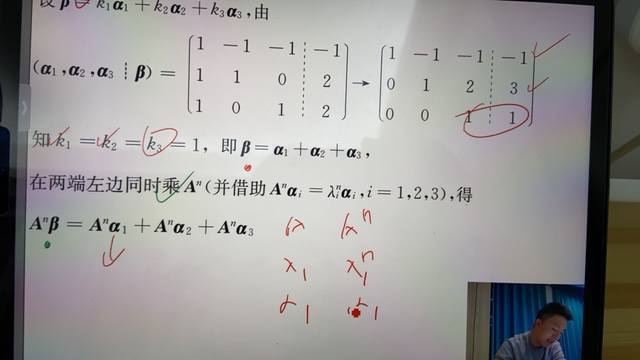 设 β = k₁α₁ + k₂α₂ + k₃α₃, 由
(α₁, α₂, α₃ ┊ β) = [1 −1 −1 ┊ −1; 1 1 0 ┊ 2; 1 0 1 ┊ 2] → [1 −1 −1 ┊ −1; 0 1 2 ┊ 3; 0 0 1 ┊ 1]
知 k₁ = k₂ = k₃ = 1, 即 β = α₁ + α₂ + α₃,
在两端左边同时乘 Aⁿ(并借助 Aⁿαᵢ = λᵢⁿαᵢ, i = 1,2,3), 得
Aⁿβ = Aⁿα₁ + Aⁿα₂ + Aⁿα₃
λ₁ λ₁ⁿ
α₁ α₁